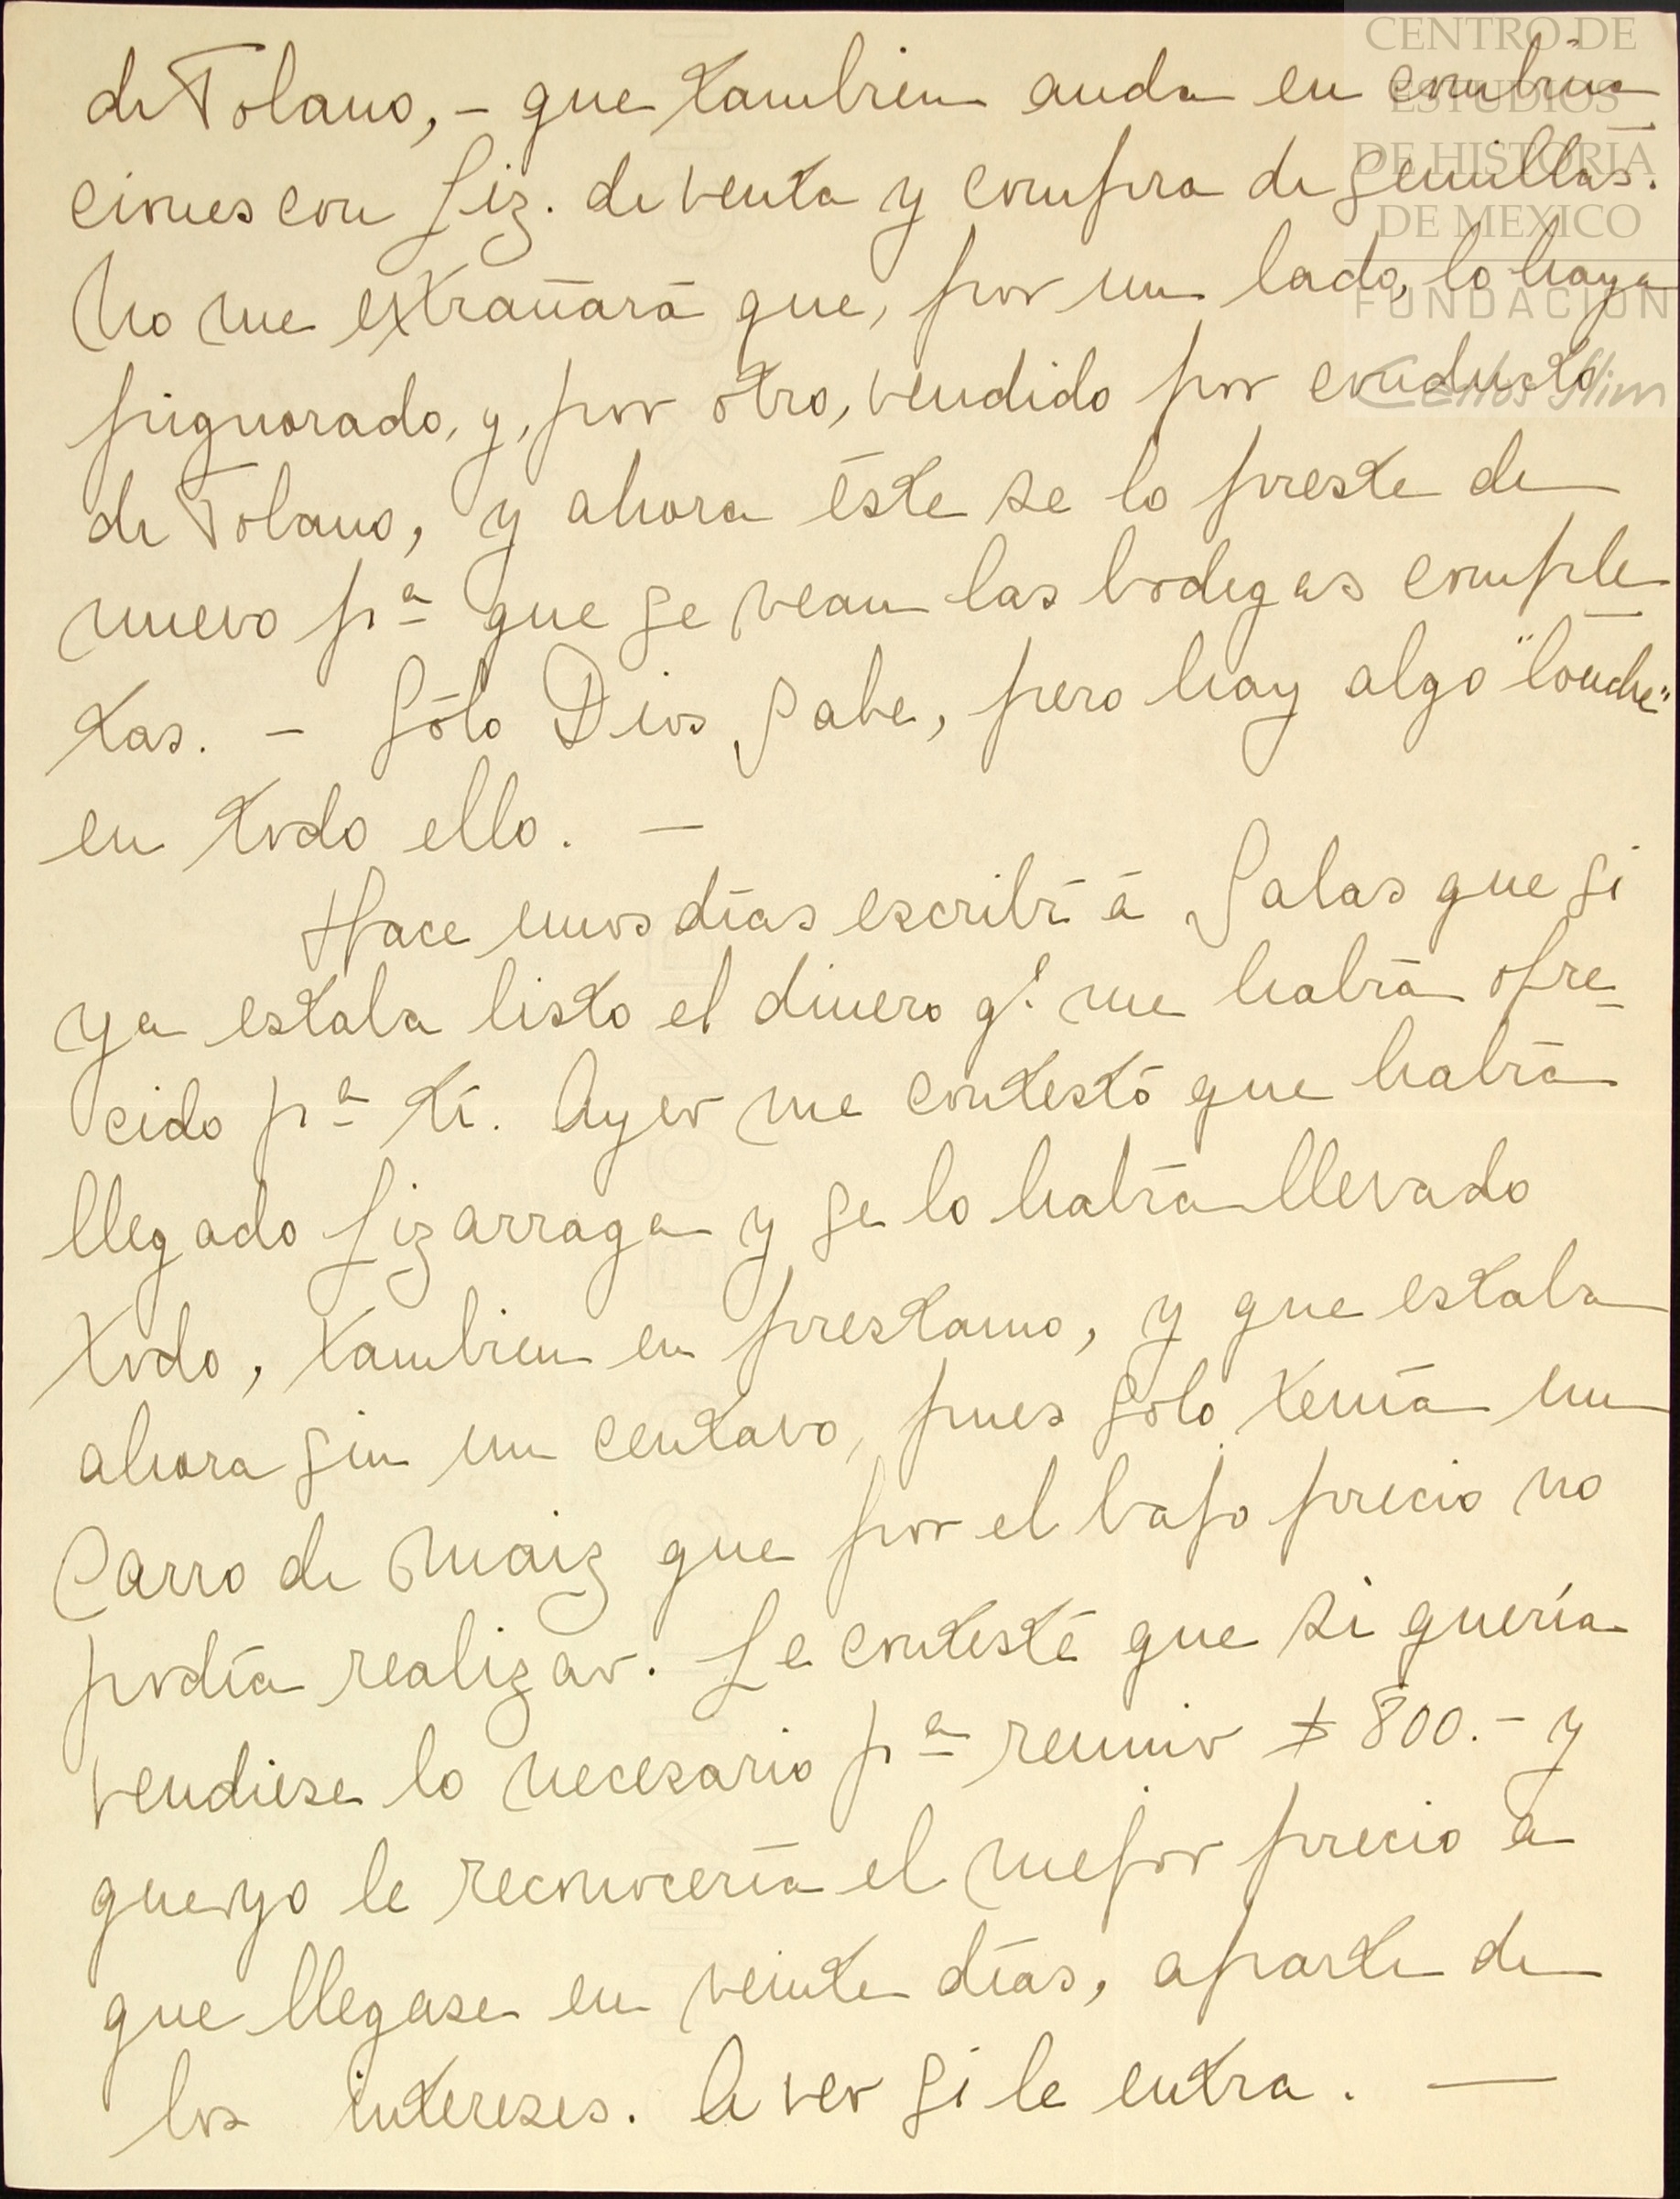 de Tolano, - que tambien anda en combina
ciones con Liz. de venta y compra de semillas.
No me extrañará que, por un lado, lo haya
pignorado, y, por otro, vendido por conducto
de Tolano, y ahora éste se lo preste de
nuevo pª que se vean las bodegas comple
tas. - Sólo Dios sabe, pero hay algo "louche"
en todo ello. —
Hace unos días escribí á Salas que si
ya estaba listo el dinero q.e me había ofre-
cido pª tí. Ayer me contestó que había
llegado Lizarraga y se lo había llevado
todo, tambien en prestamo, y que estaba
ahora sin un centavo, pues sólo tenía un
carro de maiz que por el bajo precio no
podía realizar. Le contesté que si quería
vendiese lo necesario pª reunir $ 800.- y
que yo le reconocería el mejor precio a
que llegase en veinte días, aparte de
los intereses. A ver si le entra. —
CENTRO DE
ESTUDIOS
DE HISTORIA
DE MEXICO
FUNDACION
Carlos Slim